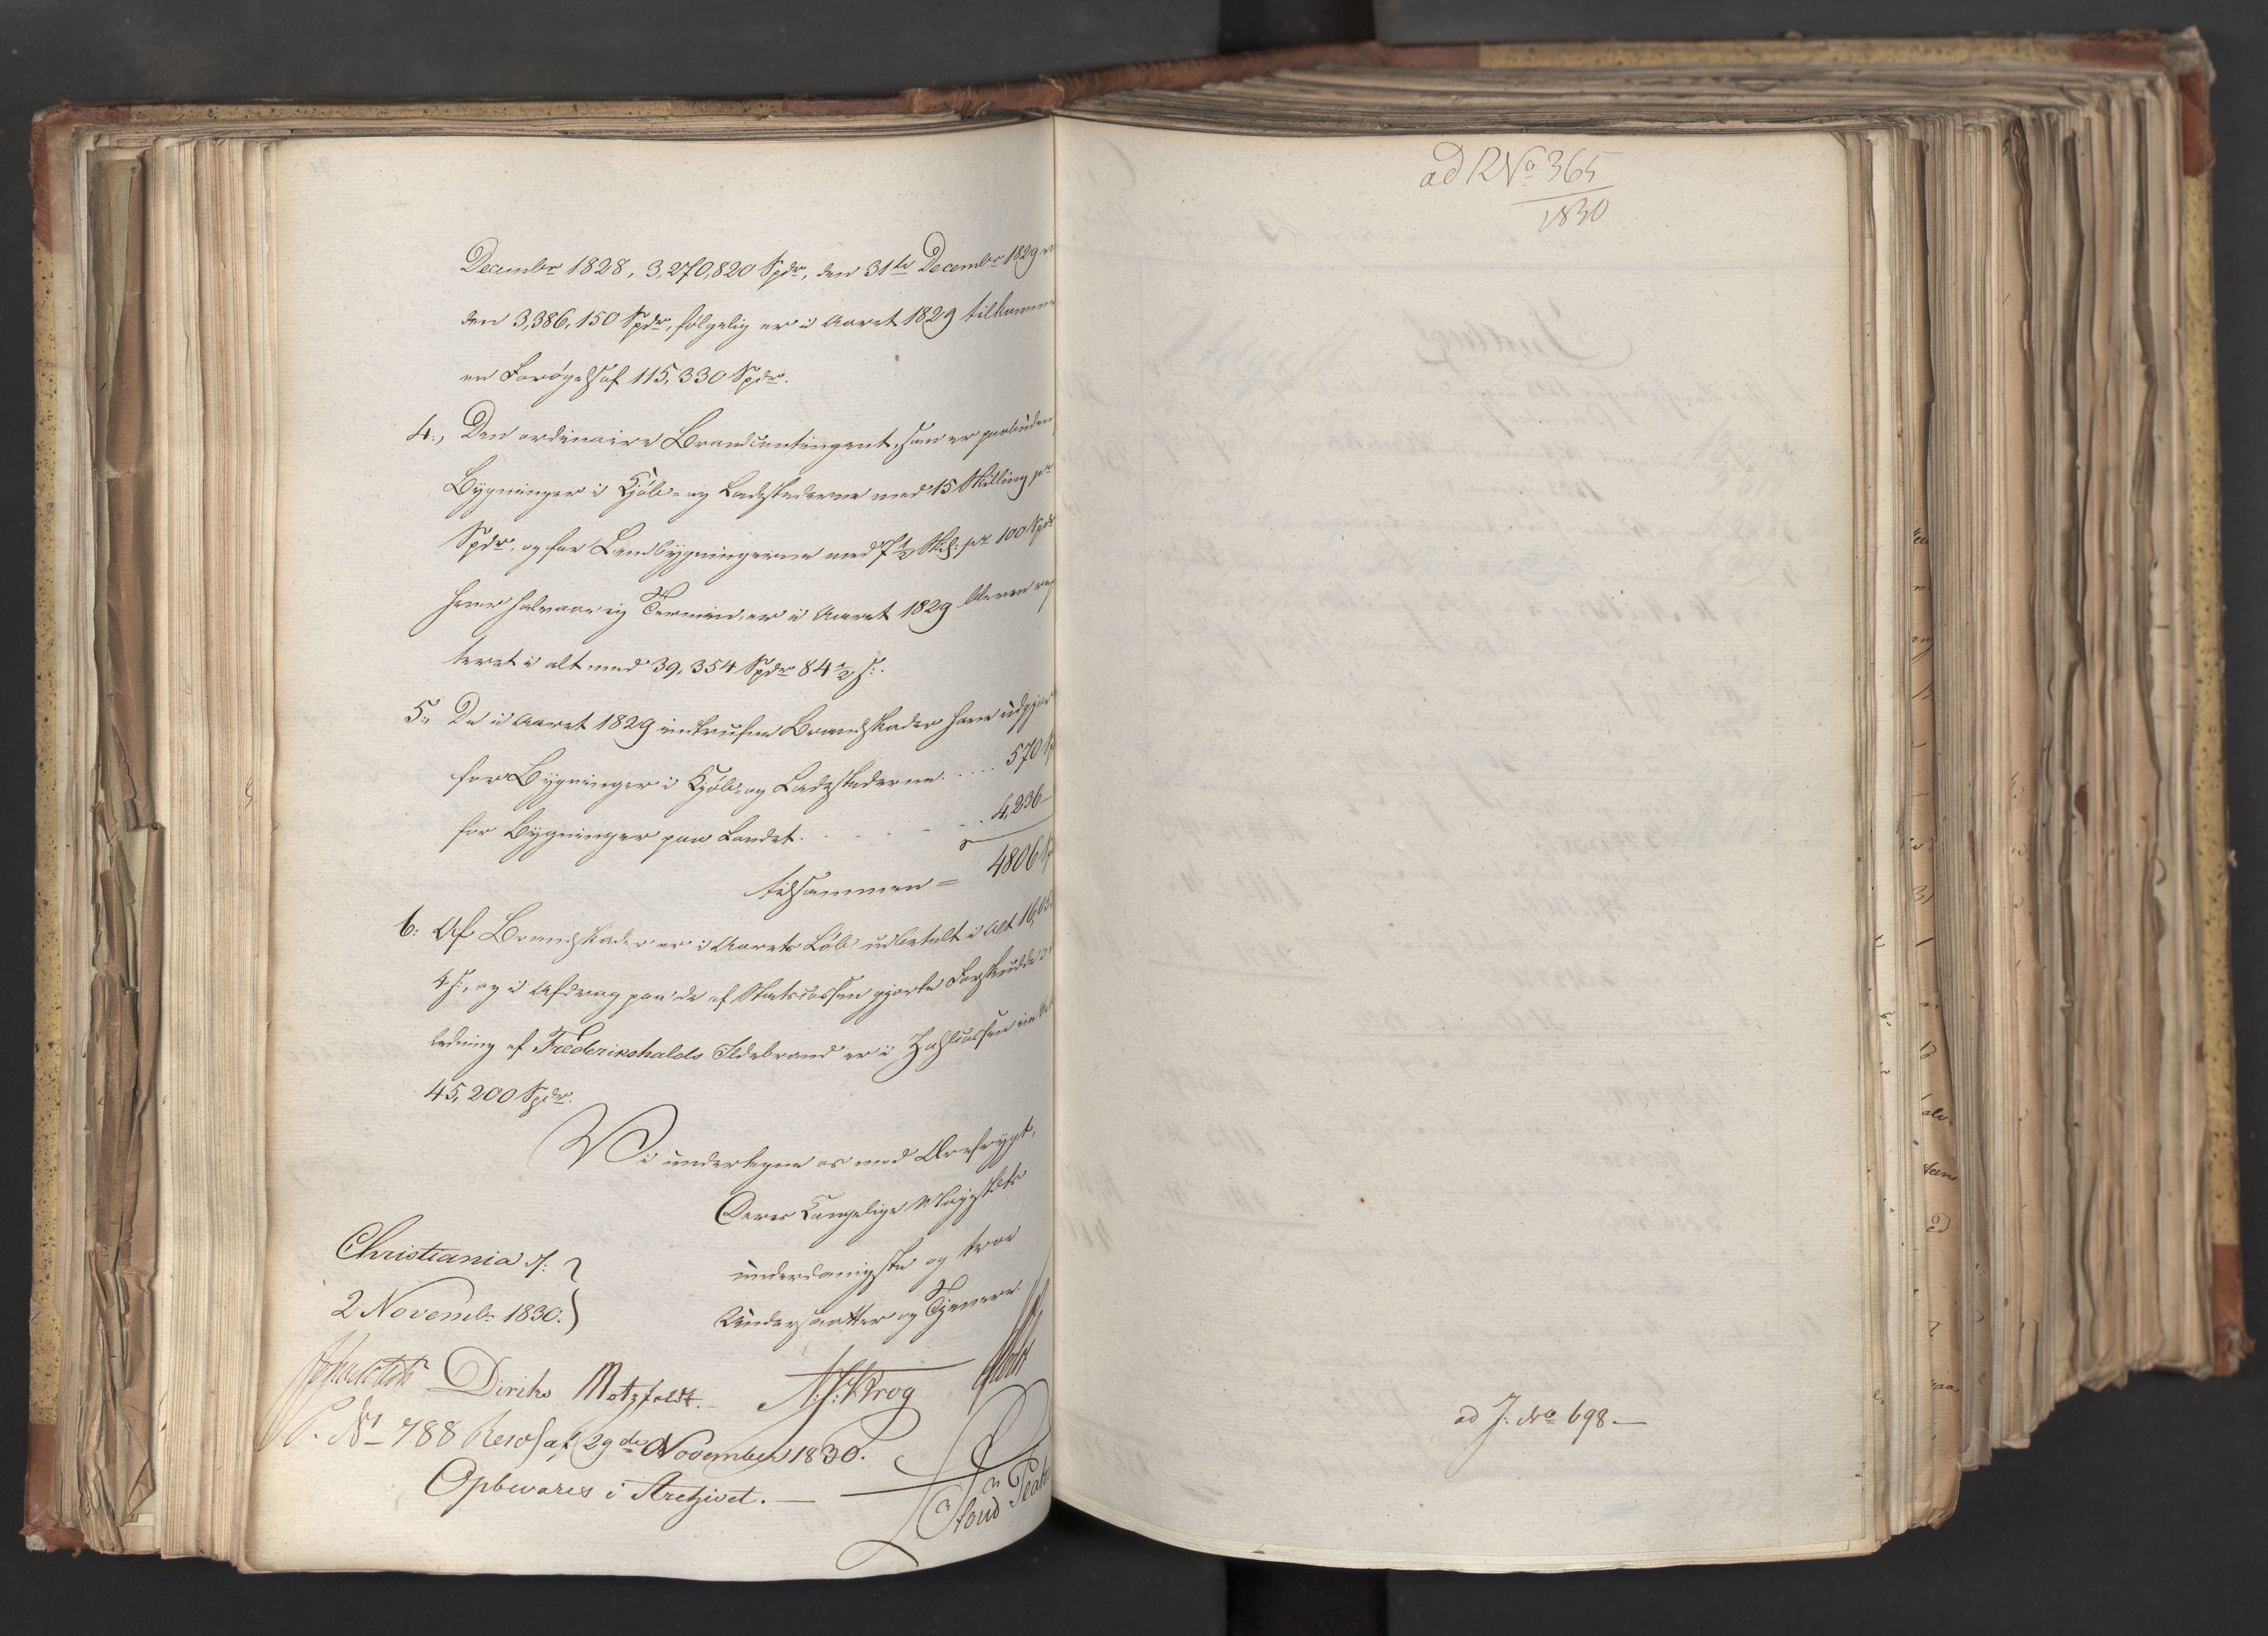 Decembr 1828, 3,270,820 Spdr, den 31te Decembr 1829
den 3,386,150 Spdr, følgelig er i Aaret 1829 tilkommen
en Forøgelse af 115,330 Spdr.
4., Den ordinaire Brandcontingent, som er paabuden
Bygninger i Kjøb- og Ladestederne med 15 Skilling pr
Spdr, og for Landbygningerne med 7½ Skil: pr 100 Spdr
hver halvaarig Termin, er i Aaret 1829 bleven
teret i alt med 39,354 Spdr 84½ s:.
5., De i Aaret 1829 indtrufne Brandskader have udgjort
for Bygninger i Kjøb- og Ladestederne. .... 570 Sp
for Bygninger paa Landet. . . . . . 4,236 –
tilsammen = 4806 Sp
6: Af Brandskader er i Aarets Løb udbetalt i Alt 16,05
4 s:, og i Afdrag paa de af Statscassen gjorte Forskudde i
ledning af Frederikshalds Ildebrand er i Zahlcassen
45,200 Spdr.
Vi undertegne os med Ærefrygt,
Deres Kongelige Majestæts
underdanigste og troe
Undersaatter og Tjenere.
Christiania d:
2 Novembr 1830.
Diriks Motzfeldt. Krog
P. No 788 Resol af 29de November 1830.
Opbevares i Archivet. —
ad R No 365
1830
ad J: No 698 —